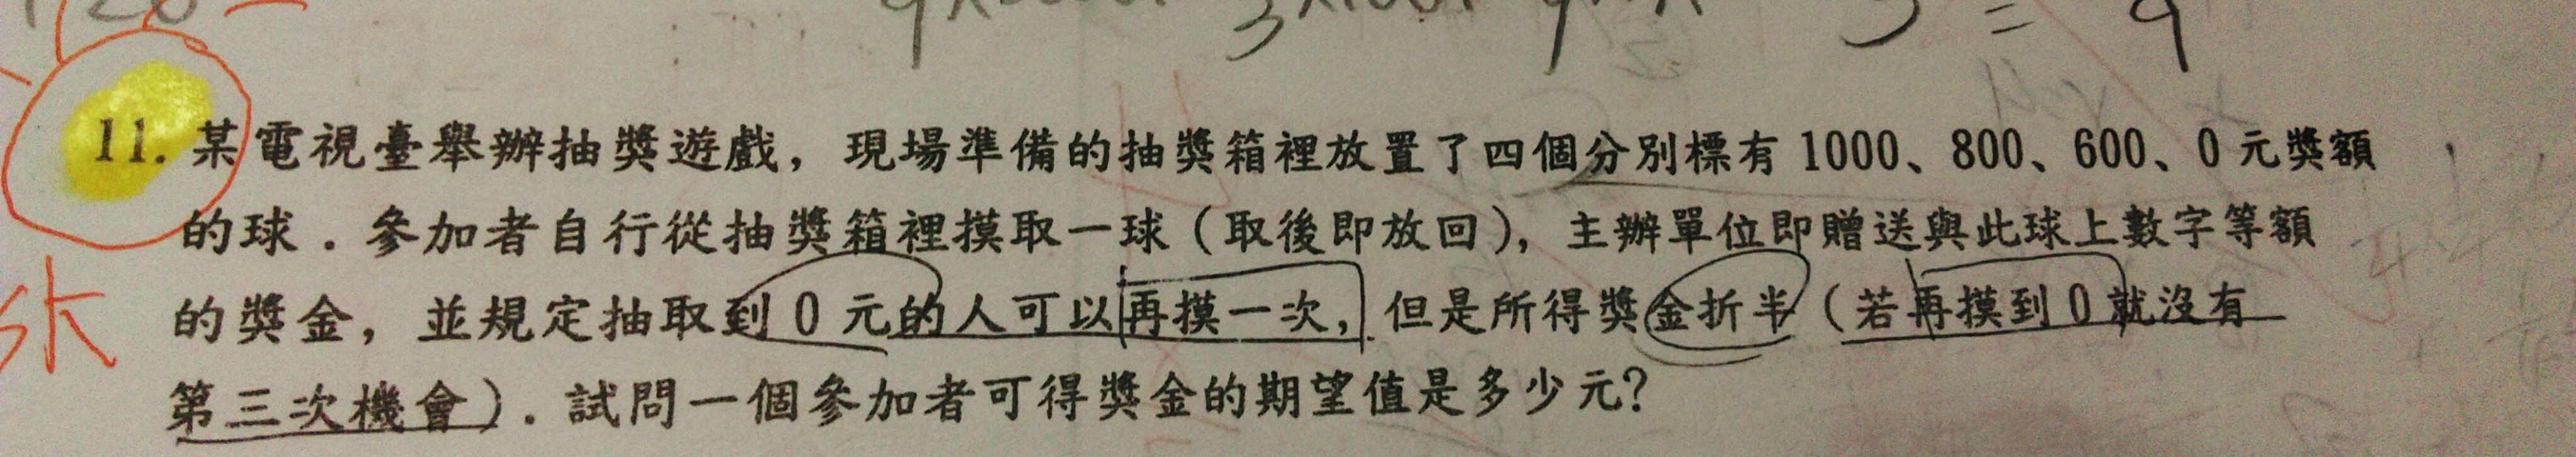 11. 某電視臺舉辦抽獎遊戲，現場準備的抽獎箱裡放置了四個分別標有 1000、800、600、0 元獎額
的球．參加者自行從抽獎箱裡摸取一球（取後即放回），主辦單位即贈送與此球上數字等額
的獎金，並規定抽取到 0 元的人可以再摸一次，但是所得獎金折半（若再摸到 0 就沒有
第三次機會）．試問一個參加者可得獎金的期望值是多少元？